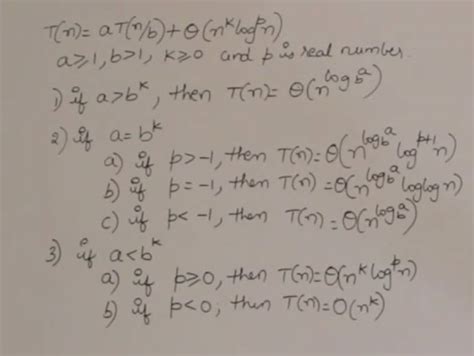 T(n) = aT(n/b) + θ(n^k log^p n)
a≥1, b>1, k≥0 and p is real number.
1) if a>b^k, then T(n) = θ(n^log_b^a)
2) if a=b^k
a) if p>-1, then T(n)=θ(n^log_b^a log^p+1 n)
b) if p=-1, then T(n) = θ(n^log_b^a loglogn)
c) if p<-1, then T(n)=θ(n^log_b^a)
3) if a<b^k
a) if p≥0, then T(n)=θ(n^k log^p n)
b) if p<0, then T(n)=O(n^k)